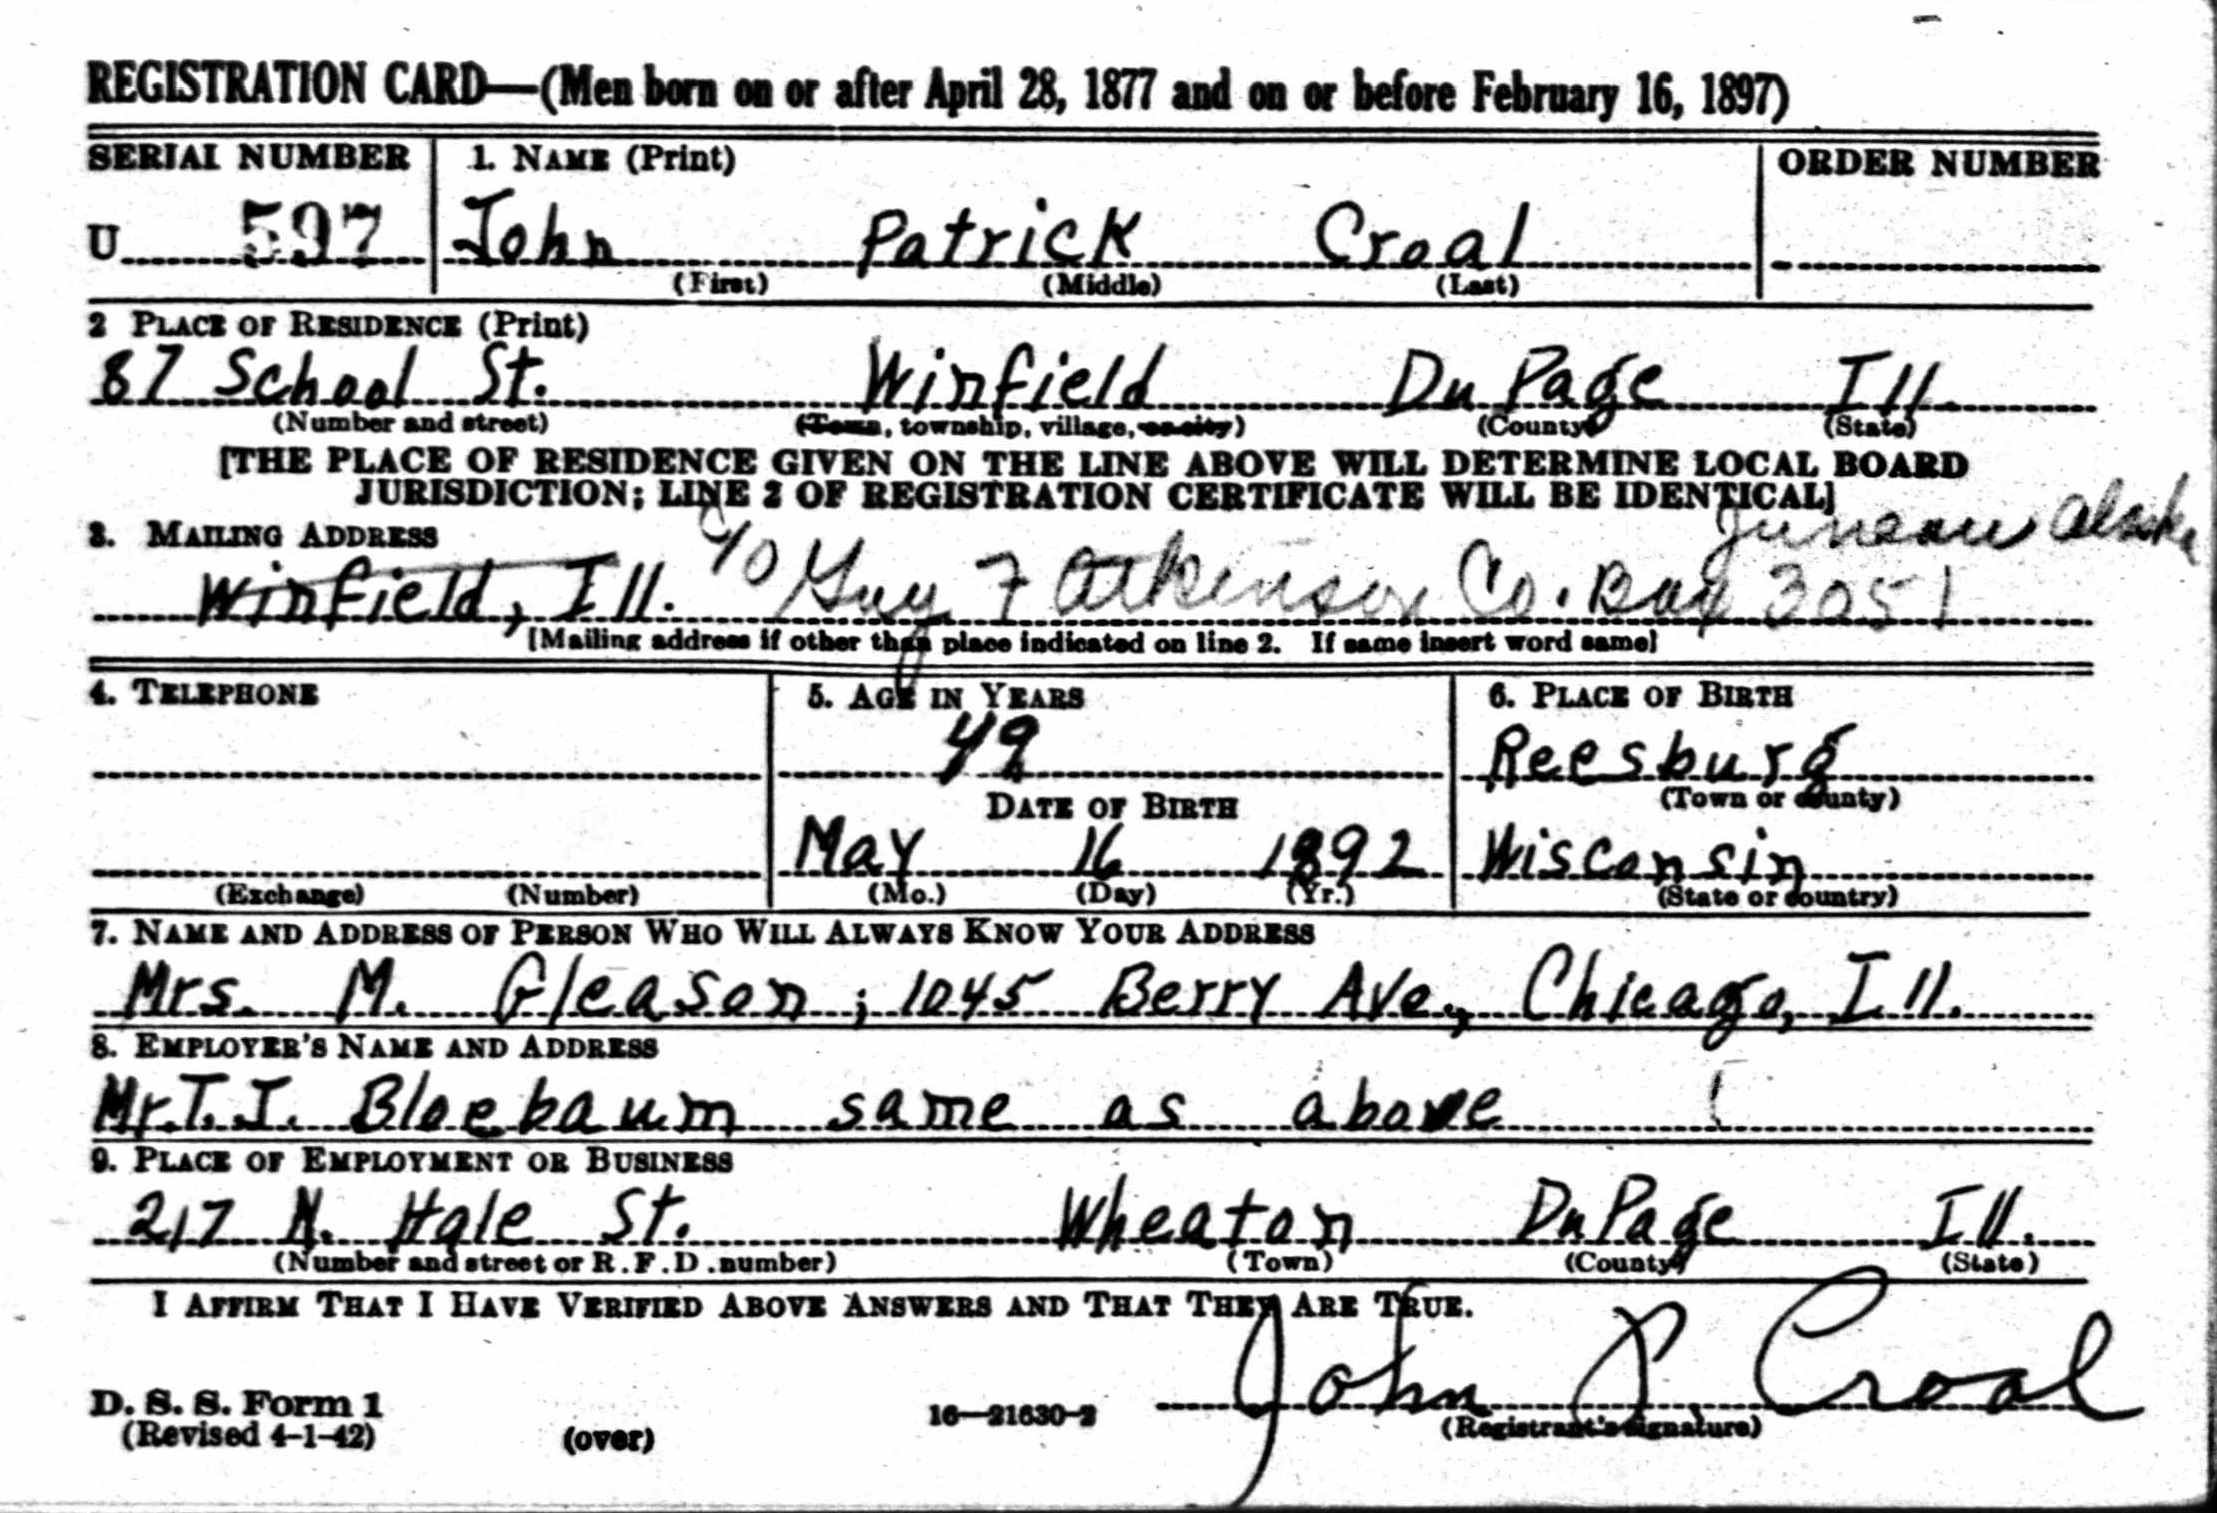 REGISTRATION CARD—(Men born on or after April 28, 1877 and on or before February 16, 1897)
SERIAL NUMBER 1. NAME (Print) ORDER NUMBER
U 597 John Patrick Croal
(First) (Middle) (Last)
2 PLACE OF RESIDENCE (Print)
87 School St. Winfield DuPage Ill.
(Number and street) (Town, township, village, or city) (County) (State)
[THE PLACE OF RESIDENCE GIVEN ON THE LINE ABOVE WILL DETERMINE LOCAL BOARD
JURISDICTION; LINE 2 OF REGISTRATION CERTIFICATE WILL BE IDENTICAL]
Juneau Alaska
3. MAILING ADDRESS
Winfield, Ill. c/o Guy F Atkinson Co. Box 3051
[Mailing address if other than place indicated on line 2. If same insert word same]
4. TELEPHONE 5. AGE IN YEARS 6. PLACE OF BIRTH
49 Reesburg
(Town or county)
DATE OF BIRTH
May 16 1892 Wisconsin
(Exchange) (Number) (Mo.) (Day) (Yr.) (State or country)
7. NAME AND ADDRESS OF PERSON WHO WILL ALWAYS KNOW YOUR ADDRESS
Mrs. M. Gleason; 1045 Berry Ave., Chicago, Ill.
8. EMPLOYER'S NAME AND ADDRESS
Mr. T. J. Bloebaum same as above
9. PLACE OF EMPLOYMENT OR BUSINESS
217 N. Hale St. Wheaton DuPage Ill.
(Number and street or R.F.D. number) (Town) (County) (State)
I AFFIRM THAT I HAVE VERIFIED ABOVE ANSWERS AND THAT THEY ARE TRUE.
John P Croal
D. S. S. Form 1 16—21630-2 (Registrant's signature)
(Revised 4-1-42) (over)